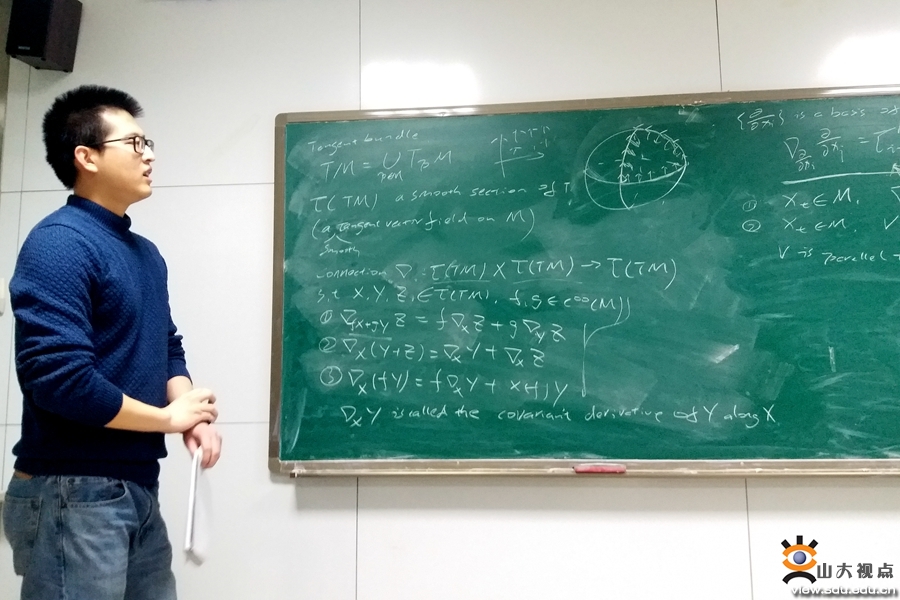 Tangent bundle
TM = ∪ TpM
p∈M
T(TM) a smooth section of T
(a tangent vector field on M)
smooth
connection ∇ : T(TM) × T(TM) → T(TM)
s.t X, Y, Z, ∈ T(TM), f, g ∈ C∞(M)
① ∇fX+gY Z = f∇xZ + g∇yZ
② ∇x(Y+Z) = ∇xY + ∇xZ
③ ∇x(fY) = f∇xY + X(f)Y
∇xY is called the covariant derivative of Y along X
{∂/∂xi} is a basis of
∇∂/∂xi ∂/∂xj =
① Xt ∈ M,
② Xt ∈ M, V
V is parallel
山大视点
view.sdu.edu.cn